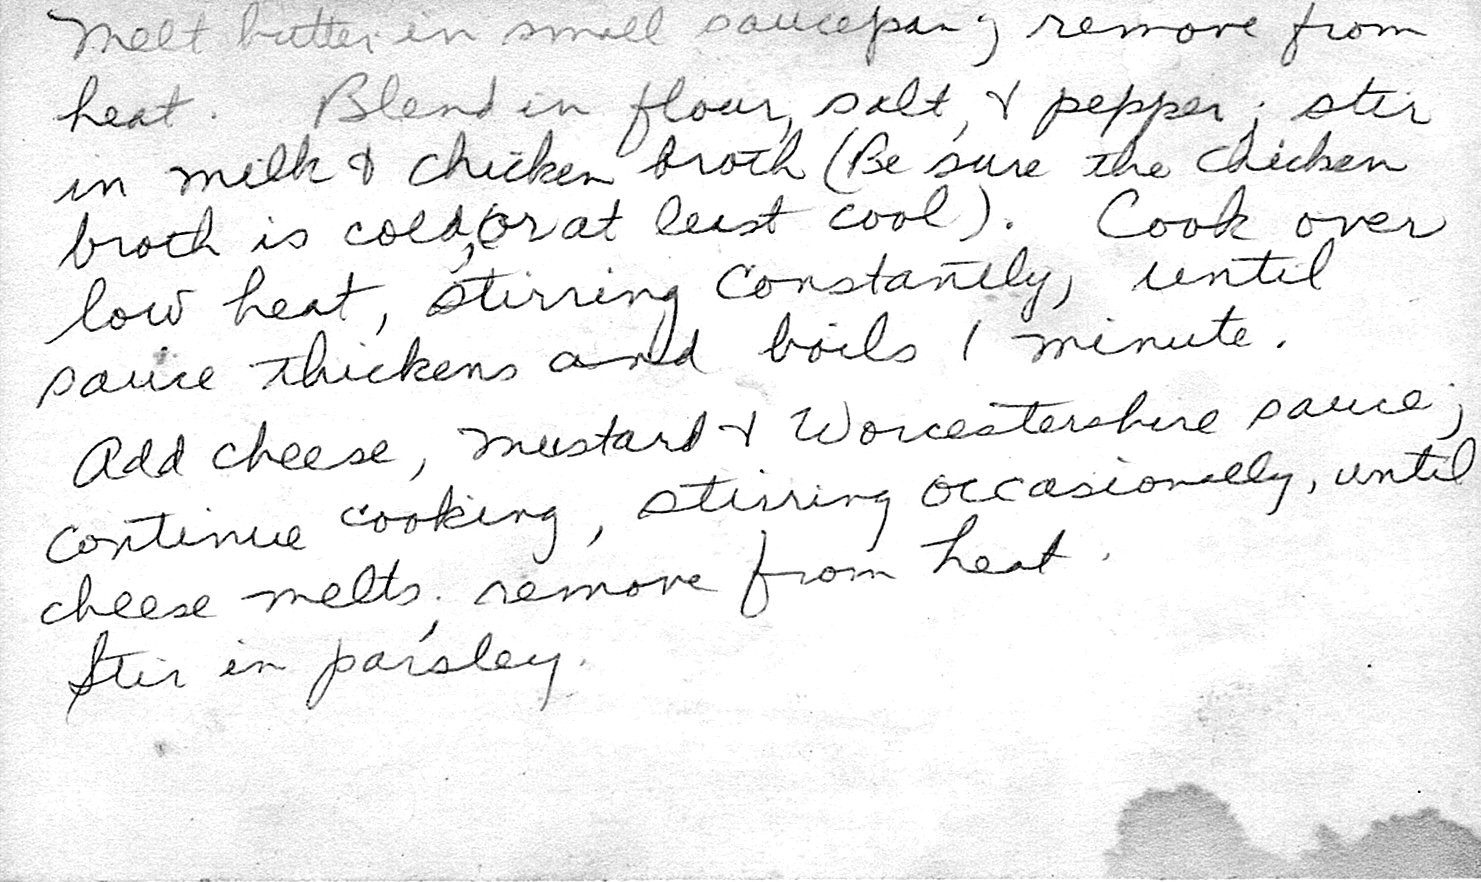 Melt butter in small saucepan; remove from
heat. Blend in flour, salt, & pepper; stir
in milk & chicken broth (Be sure the chicken
broth is cold, (or at least cool). Cook over
low heat, stirring constantly, until
sauce thickens and boils 1 minute.
Add cheese, mustard & Worcestershire sauce;
continue cooking, stirring occasionally, until
cheese melts; remove from heat.
Stir in parsley.